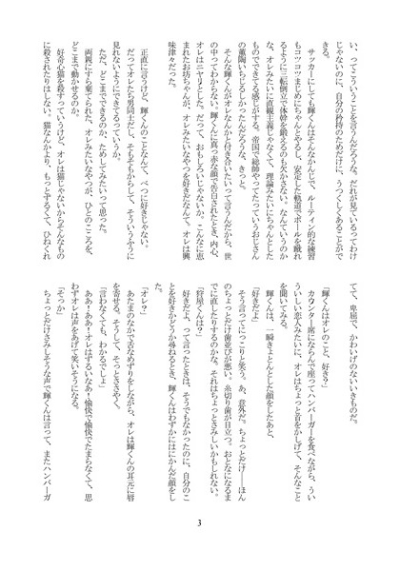 い、ってこういうことを言うんだろうな。だれが見ているってわけ
じゃないのに、自分の矜持のためだけに、うつくしくあることがで
きる。
サッカーにしても輝くんはそんなかんじで、ルーティン的な練習
もコツコツまじめにちゃんとやるし、安定した軌道でボールを蹴れ
るように三転倒立で体幹を鍛えるのも欠かさない。なんていうのか
な、オレみたいに直観主義じゃなくて、理論みたいにちゃんとした
ものでできてる感じがする。帝国で総帥やってたっていうおじさん
の薫陶いちじるしかったんだろうな、きっと。
そんな輝くんがオレなんかと付き合いたいって言うんだから、世
の中ってわからない。輝くんに真っ赤な顔で告白されたとき、内心、
オレはニヤリとした。だって、おもしろいじゃないか。こんなに恵
まれたお坊ちゃんが、オレみたいなやつを好きだなんて。オレは興
味津々だった。
正直に言うけど、輝くんのことなんて、べつに好きじゃない。
だってオレたち男同士だし、そもそもからして、そういうふうに
見れないようにできてるっていうか。
ただ、どこまでできるのか、ためしてみたいって思った。
両親にすら棄てられた、オレみたいなやつが、ひとのこころを、
どこまで動かせるのか。
好奇心猫を殺すっていうけど、オレは猫じゃないからそんなもの
に殺されたりはしない。猫なんかより、もっとずるくて、ひねくれ
てて、卑屈で、かわいげのないいきものだ。
「輝くんはオレのこと、好き？」
カウンター席にならんで座ってハンバーガーを食べながら、うい
ういしい恋人みたいに、オレはちょっと首をかしげて、そんなこと
を聞いてみる。
輝くんは、一瞬きょとんとした顔をしたあと、
「好きだよ」
って言ってにっこりと笑う。あ、意外だ。ちょっとだけ――ほん
のちょっとだけ歯並びが悪い。糸切り歯が目立つ。おとなになるま
でに直したりするのかな。それはちょっとさみしいかもしれない。
「狩屋くんは？」
好きだよ、って言ったときは、そうでもなかったのに、自分のこ
とを好きかどうか尋ねるとき、輝くんはわずかにはにかんだ顔をし
た。
「オレ？」
あたまのなかで舌なめずりをしながら、オレは輝くんの耳元に唇
を寄せる。そうして、そっとささやく。
「言わなくても、わかるでしょ」
ああ！ああ！オレはずるいなあ！愉快で愉快でたまらなくて、思
わずオレは声をあげて笑いそうになる。
「そっか」
ちょっとだけさみしそうな声で輝くんは言って、またハンバーガ
3